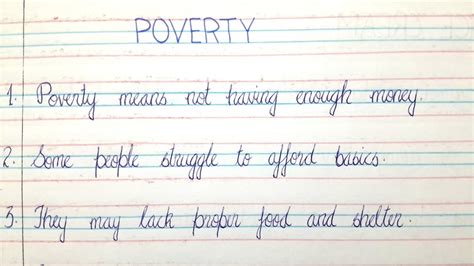 POVERTY
1. Poverty means not having enough money.
2. Some people struggle to afford basics.
3. They may lack proper food and shelter.